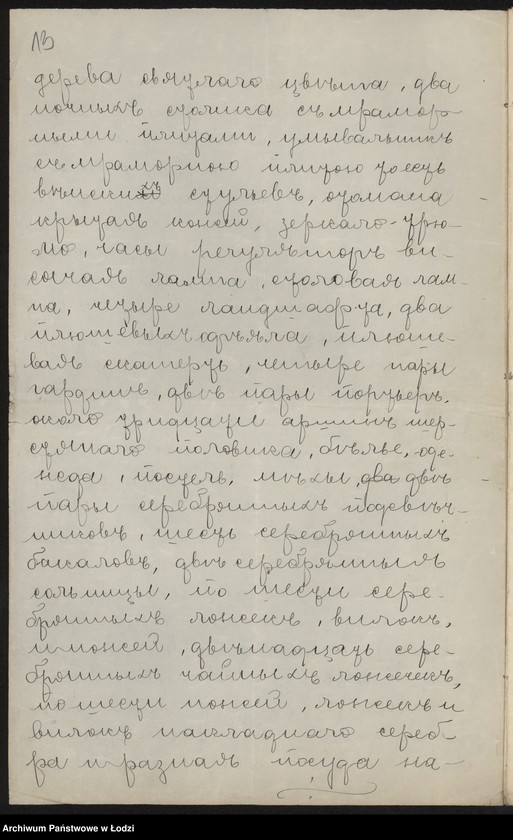 13
дерева свѣтлаго цвѣта, два
ночныхъ столика съ мрамор-
ными плитами, умывальникъ
съ мраморною плитою, шесть
вѣнскихъ стульевъ, отомана
крытая кожей, зеркало-трю-
мо, часы регуляторъ, ви-
сячая лампа, столовая лам-
па, четыре ландшафта, два
плюшевыхъ одѣяла, плюше-
вая скатерть, четыре пары
гардинъ, двѣ пары портьеръ.
около тридцати аршинъ шер-
стяного половика, бѣлье, оде-
жда, постель, мѣхи, два двѣ
пары серебряныхъ подсвѣч-
никовъ, шесть серебряныхъ
бакаловъ, двѣ серебряныя
сольницы, по шести сере-
бряныхъ ложекъ, вилокъ,
и ножей, двѣнадцать сере-
бряныхъ чайныхъ ложечекъ,
по шести ножей, ложекъ и
вилокъ накладнаго сереб-
ра и разная посуда на-
Archiwum Państwowe w Łodzi